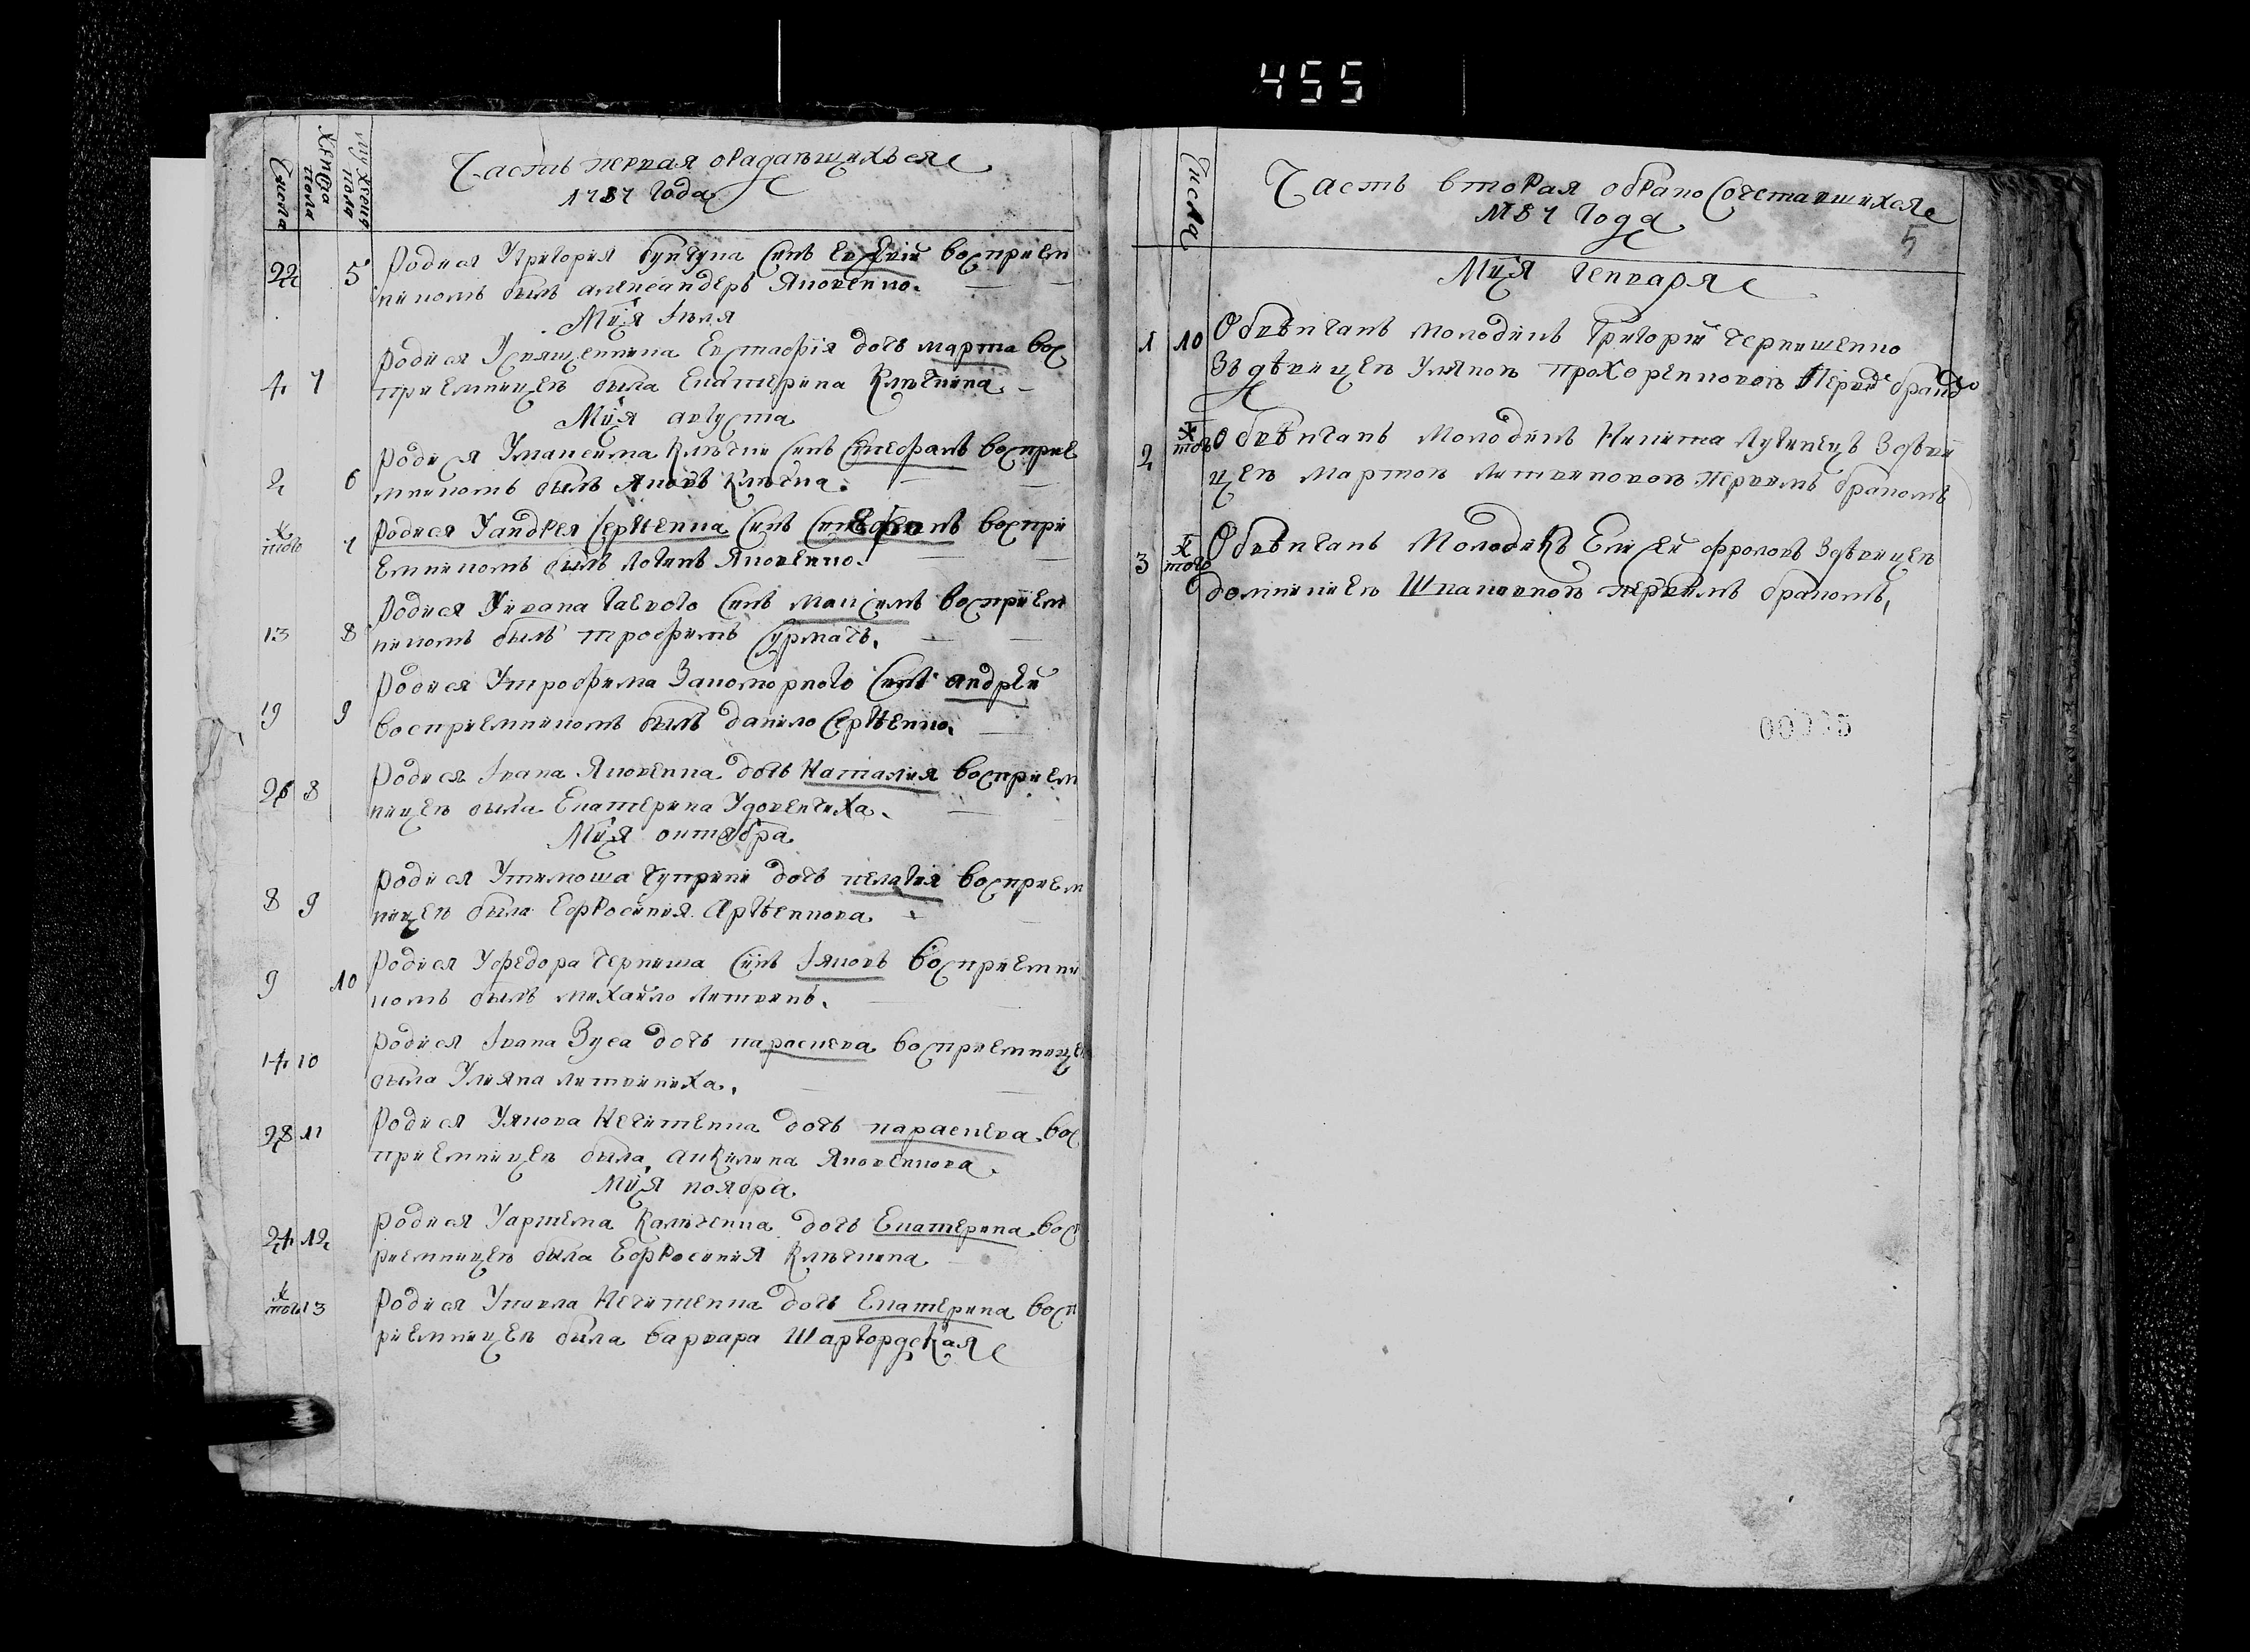 455
Числа
Женска пола
Мужеска пола
Часть первая о раждающихъся
1787 Года
22 5 Родися У Григория Бунчука Синъ Евсевий Восприем
ником былъ александеръ Яковенко.
М̃ця Июля
4 7 Родися У священника Евстафія дочь марта вос
приемницею была Екатерина Климчина
М̃ця августа
2 6 Родися У максима Климчи Синъ Стефанъ Восприе
мникомъ былъ Яковъ Климча.
того ж 7 Родися У андрея Сергѣенка Синъ Стефанъ Воспри
емникомъ былъ Логинъ Яковенко.
13 8 Родися У ивана Гаевого Синъ максимъ Восприем
никомъ былъ трофимъ Сурмачъ.
19 9 Родися У трофима Закоморного Синъ андрей
Восприемникомъ былъ данило Сергѣенко.
26 8 Родися Ивана Яковенка дочь Наталия Восприем
ницею была Екатерина Удовенчиха.
М̃ця октября
8 9 Родися У тимоша Чуприни дочь пелагия Восприем
ницею была Ефросиния Сергѣенкова
9 10 Родися У федора Черниша Синъ Iяковъ Восприемни
комъ былъ михайло Литвинъ.
14 10 Родися Ивана Зуса дочь параскева Восприемницею
была Улияна литвиниха.
28 11 Родися У якова Нечитенка дочь параскева вос
приемницею была акилина Яковенкова.
М̃ця ноября
24 12 Родися У артема Каличенка дочь Екатерина восп
риемницею была Ефросиния Климчина
того ж 13 Родися У павла Нечитенка дочь Екатерина Восп
риемницею была варвара Шаргородская
Числа
Часть вторая о брако Сочетавшихся
1787 Года
5
М̃ця Генваря
1 10 Обвѣнчанъ молодикъ Григорий Чернишенко
Зъ дѣвицею Уляною прохоренковою первим браком
2 того ж Обвѣнчанъ молодикъ Никита Лучинецъ З дѣви
цею мартою литвиновою первимъ бракомъ
3 того ж Обвѣнчанъ молодикъ Елисей фроловъ З дѣвицею
домникиею Шпаковною первимъ бракомъ,
00005